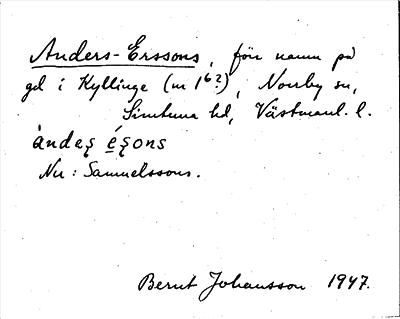 Anders-Erssons, förr namn på
gd i Kyllinge (nr 1 6 2), Norrby sn,
Simtuna hd, Västmanl. l.
àndeʂ éʂons
Nu: Samuelssons.
Bernt Johansson 1947.